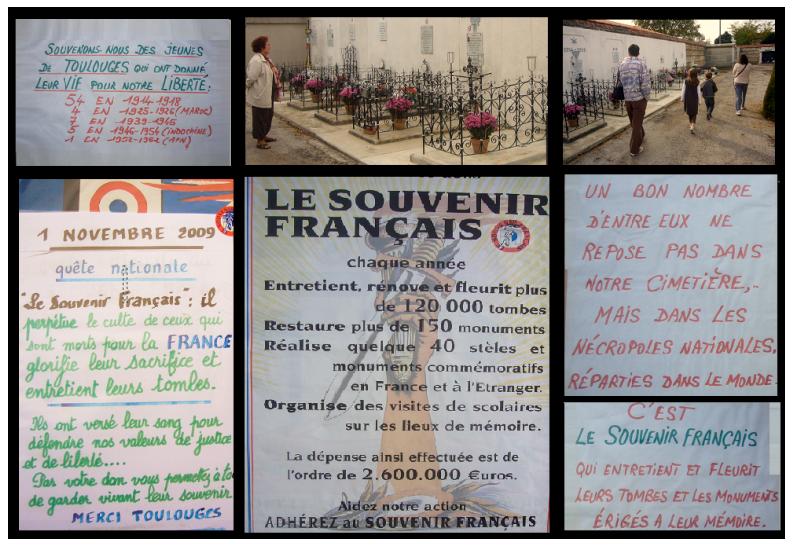 SOUVENONS-NOUS DES JEUNES
DE TOULOUGES QUI ONT DONNÉ
LEUR VIE POUR NOTRE LIBERTÉ:
54 EN 1914-1918
4 EN 1925-1926 (MAROC)
7 EN 1939-1945
5 EN 1946-1954 (INDOCHINE)
1 EN 1952-1962 (AFN)
1 NOVEMBRE 2009
quête nationale
"Le Souvenir Français": il
perpétue le culte de ceux qui
sont morts pour la FRANCE
glorifie leur sacrifice et
entretient leurs tombes.
Ils ont versé leur sang pour
défendre nos valeurs de justice
et de liberté....
Par votre don vous permettez à to
de garder vivant leur souvenir
MERCI TOULOUGES
LE SOUVENIR
FRANÇAIS
chaque année
Entretient, rénove et fleurit plus
de 120 000 tombes
Restaure plus de 150 monuments
Réalise quelque 40 stèles et
monuments commémoratifs
en France et à l'Etranger.
Organise des visites de scolaires
sur les lieux de mémoire.
La dépense ainsi effectuée est de
l'ordre de 2.600.000 €uros.
Aidez notre action
ADHÉREZ au SOUVENIR FRANÇAIS
UN BON NOMBRE
D'ENTRE EUX NE
REPOSE PAS DANS
NOTRE CIMETIÈRE,..
MAIS DANS LES
NÉCROPOLES NATIONALES,
RÉPARTIES DANS LE MONDE.
C'EST
LE SOUVENIR FRANÇAIS
QUI ENTRETIENT ET FLEURIT
LEURS TOMBES ET LES MONUMENTS
ÉRIGÉS A LEUR MÉMOIRE.